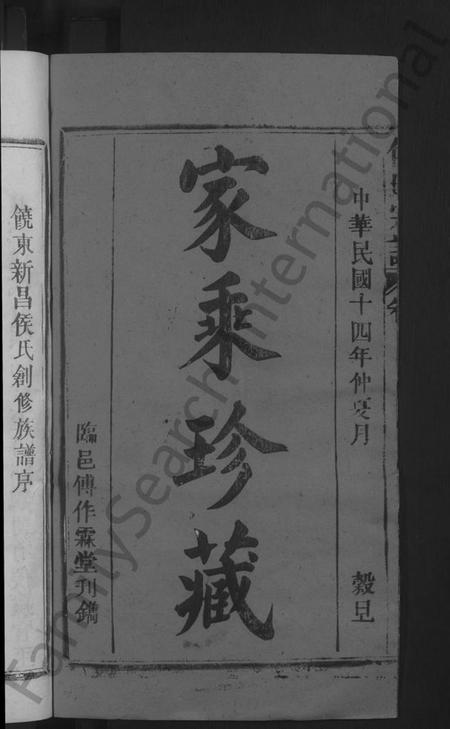 中華民國十四年仲夏月 穀旦
家乘珍藏
臨邑傅作霖堂刊鐫
饒東新昌侯氏創修族譜序
FamilySearch International